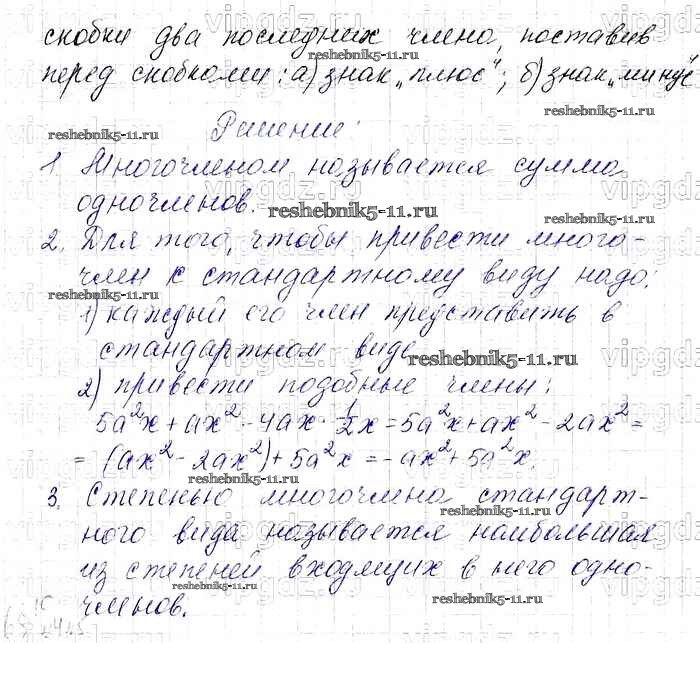 скобки два последних члена, поставив
перед скобками: а) знак „плюс“; б) знак „минус
Решение:
1. Многочленом называется сумма
одночленов.
2. Для того, чтобы привести много-
член к стандартному виду надо:
1) каждый его член представить в
стандартном виде
2) привести подобные члены:
5a²x + ax² - 4ax · 1/2x = 5a²x + ax² - 2ax² =
= (ax² - 2ax²) + 5a²x = -ax² + 5a²x.
3. Степенью многочлена стандарт-
ного вида называется наибольшая
из степеней входящих в него одно-
членов.